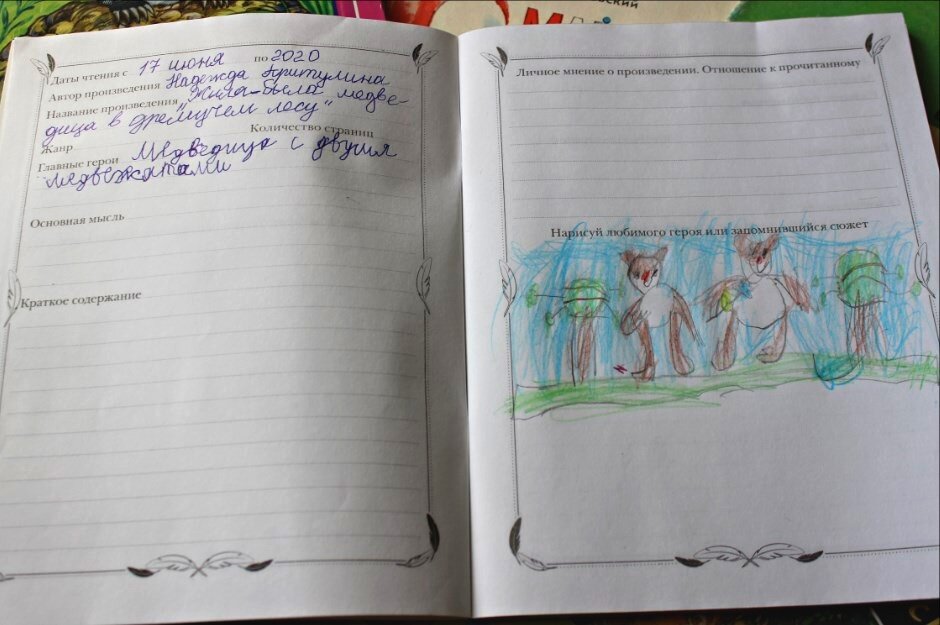 Даты чтения с 17 июня по 2020
Автор произведения Надежда Притулина
Название произведения „Жила-была медве-
дица в дремучем лесу"
Жанр Количество страниц
Главные герои Медведица с двумя
медвежатами
Основная мысль
Краткое содержание
Личное мнение о произведении. Отношение к прочитанному
Нарисуй любимого героя или запомнившийся сюжет